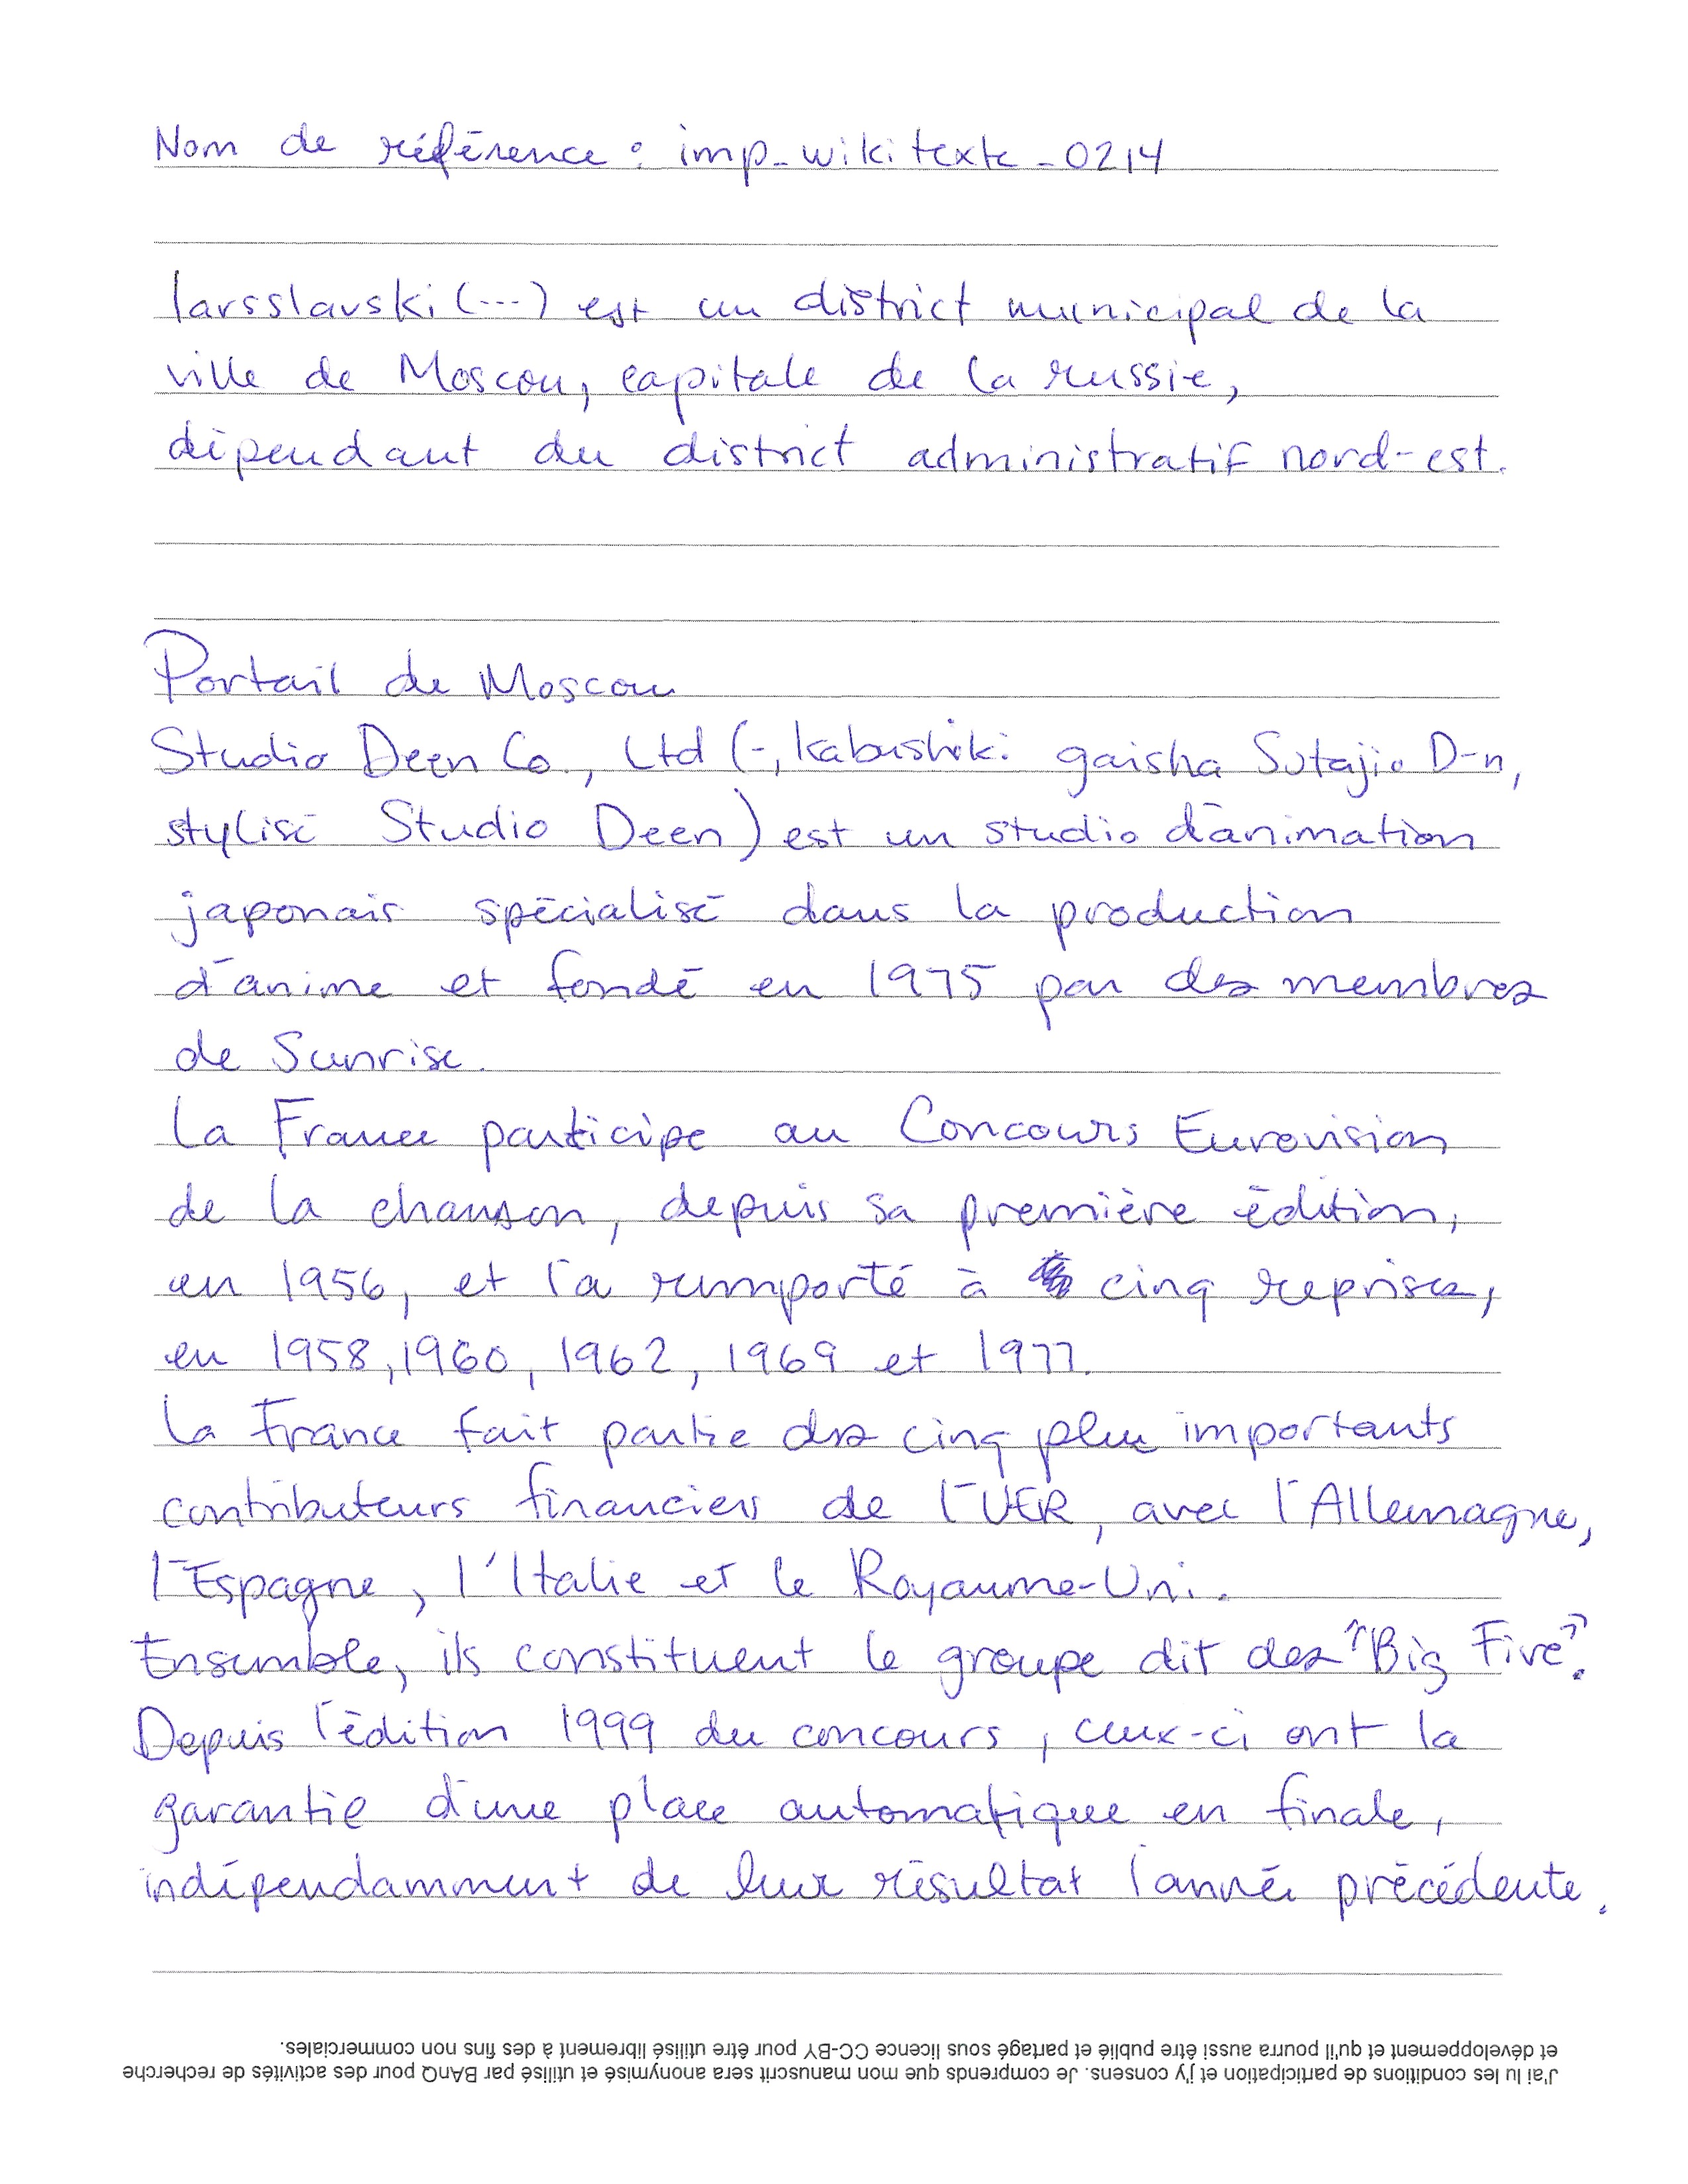 Nom de référence : imp_wikitexte_0214
Iarsslavski (---) est un district municipal de la
ville de Moscou, capitale de la russie,
dépendant du district administratif nord-est.
Portail de Moscou
Studio Deen Co., Ltd (-, kabushiki gaisha Sutajio D-n,
stylisé Studio Deen) est un studio d'animation
japonais spécialisé dans la production
d'anime et fondé en 1975 par des membres
de Sunrise.
La France participe au Concours Eurovision
de la chanson, depuis sa première édition,
en 1956, et l'a remporté à cinq reprises,
en 1958, 1960, 1962, 1969 et 1977.
La France fait partie des cinq plus importants
contributeurs financiers de l'UER, avec l'Allemagne,
l'Espagne, l'Italie et le Royaume-Uni.
Ensemble, ils constituent le groupe dit des "Big Five".
Depuis l'édition 1999 du concours, ceux-ci ont la
garantie d'une place automatique en finale,
indépendamment de leur résultat l'année précédente.
J'ai lu les conditions de participation et j'y consens. Je comprends que mon manuscrit sera anonymisé et utilisé par BAnQ pour des activités de recherche
et développement et qu'il pourra aussi être publié et partagé sous licence CC-BY pour être utilisé librement à des fins non commerciales.